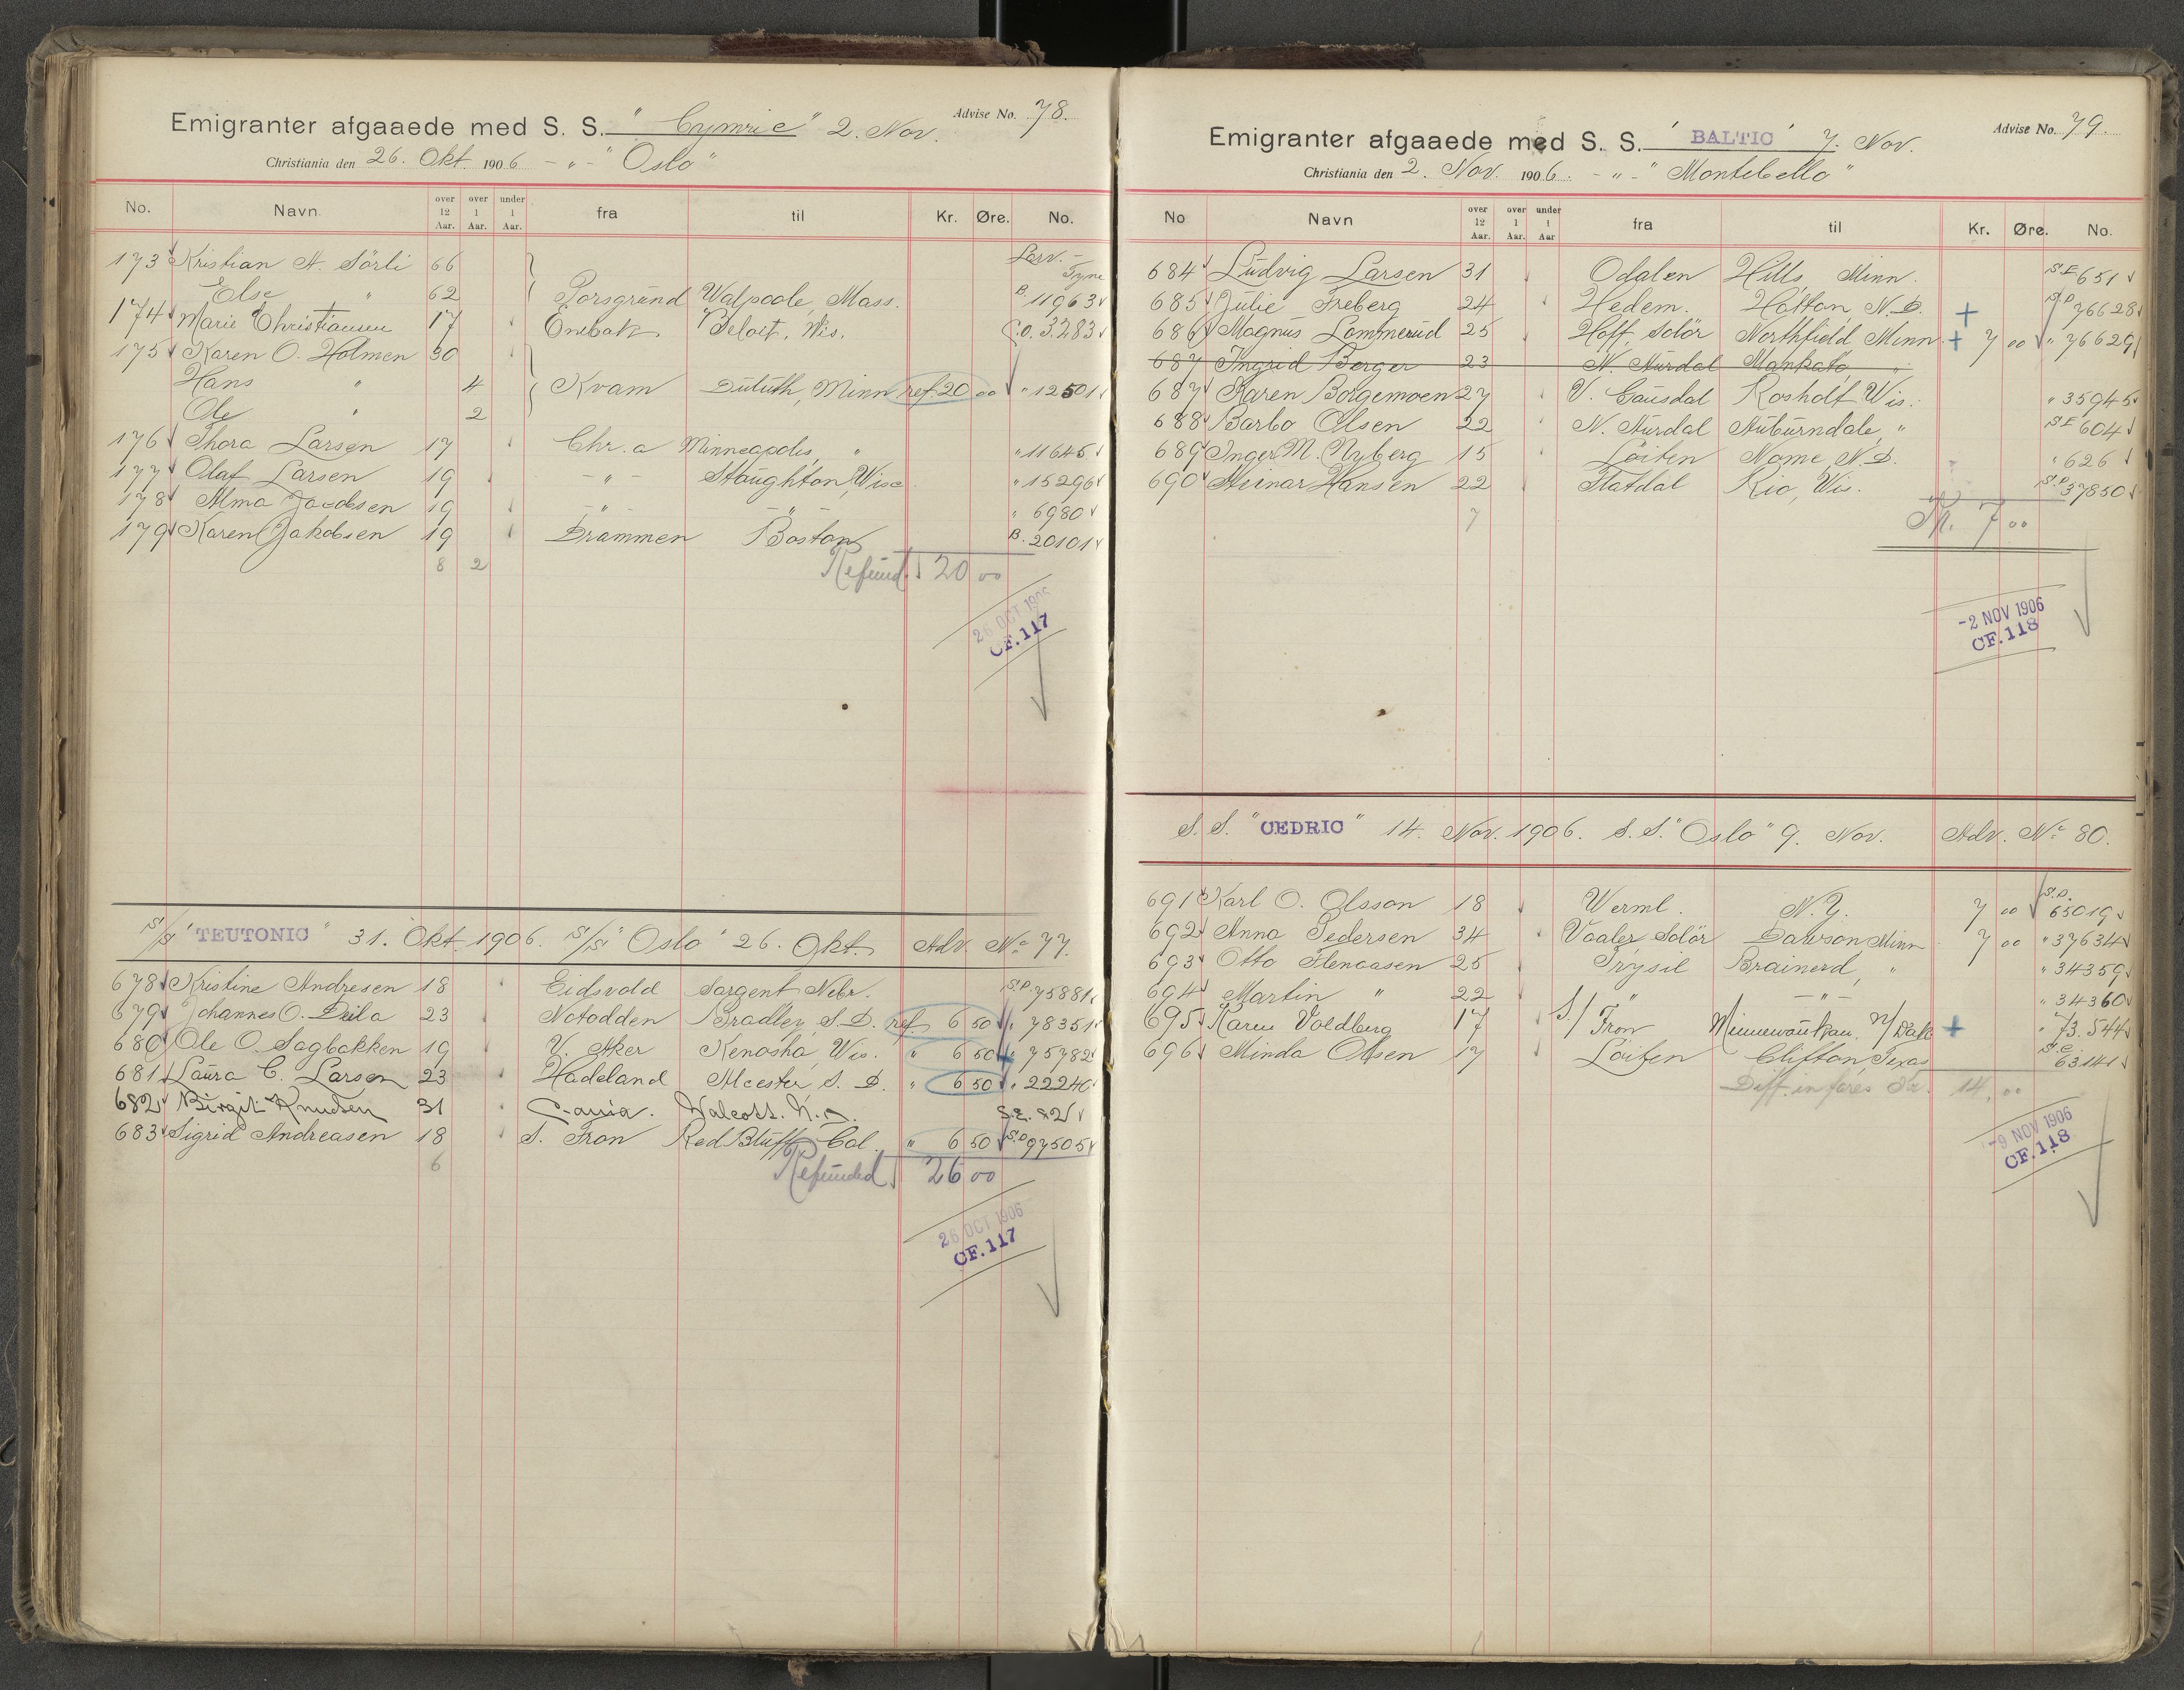 Emigranter afgaaede med S. S. "Cymric" 2. Nov. Advise No. 78.
Christiania den 26. Okt. 1906 - " - "Oslo"
No. Navn over 12 Aar. over 1 Aar. under 1 Aar. fra til Kr. Øre. No.
173 Kristian A. Sörli 66 Larv. - Tyne
Else " 62 Porsgrund Walpole, Mass. B. 11963
174 Marie Christiansen 17 Enebak Beloit, Wis. C.O. 3283
175 Karen O. Holmen 30
Hans " 4 Kvam Duluth, Minn ref. 20 00 " 12501
Ole " 2
176 Thora Larsen 17 Chr.a Minneapolis, " " 11645
177 Olaf Larsen 19 - " - Stoughton, Wisc " 15296
178 Alma Jacobsen 19 - " - - " - " 6980
179 Karen Jakobsen 19 Drammen Boston B. 20101
8 2 Refund. 20 00
26 OCT 1906
CF. 117
S/S "TEUTONIC" 31. Okt. 1906. S/S "Oslo" 26. Okt. Adv. No. 77.
678 Kristine Andresen 18 Eidsvold Sargent Nebr. S.P. 75881
679 Johannes O. Deila 23 Notodden Bradley, S.D. ref. 6 50 " 78351
680 Ole O. Sagbakken 19 V. Aker Kenosha, Wis. " 6 50 " 75782
681 Laura C. Larsen 23 Hadeland Alcester S. D. " 6 50 " 22240
682 Birgit Knudsen 31 Walcott. N.D. S.E. 82
683 Sigrid Andreasen 18 S. Fron Red Bluff, Cal. " 6 50 S.P. 97505
6 Refunded 26 00
26 OCT 1906
CF. 117
Emigranter afgaaede med S. S. "BALTIC" 7. Nov. Advise No. 79.
Christiania den 2. Nov. 1906. - " - "Montebello"
No Navn over 12 Aar. over 1 Aar. under 1 Aar fra til Kr. Øre. No.
684 Ludvig Larsen 31 Odalen Hills, Minn. S.E. 651
685 Julie Freberg 24 Hedem. Hatton, N.D. + S.P. 76628
686 Magnus Lommerud 25 Hoff, Solör Northfield Minn. + 7 00 " 76629
687 Ingrid Berger 23 N. Aurdal Mankato, "
687 Karen Borgemoen 27 V. Gausdal Rosholt Wis. " 35945
688 Barbo Olsen 22 N. Aurdal Auburndale, " S.E. 604
689 Inger M. Nyberg 15 Löiten Nome, N.D. " 626
690 Heinar Hansen 22 Flatdal Rio, Wis. S.P. 37850
7 Kr. 7 00
-2 NOV 1906
CF. 118
S. S. "CEDRIC" 14. Nov. 1906. S. S. "Oslo" 9. Nov. Adv. No. 80.
691 Karl O. Olsson 18 Werml. N.Y. 7 00 S.P. 65019
692 Anna Pedersen 34 Vaaler Solör Dawson, Minn. 7 00 " 37634
693 Otto Flenaasen 25 Trysil Brainerd, " " 34359
694 Martin " 22 " - " - " 34360
695 Karen Voldberg 17 S./ Fron Minnewaukan. N/Dak + " 73.544
696 Minda Olsen 17 Löiten Clifton, Texas S.E. 63141
Diff. in fares Kr. 14,00
-9 NOV 1906
CF. 118